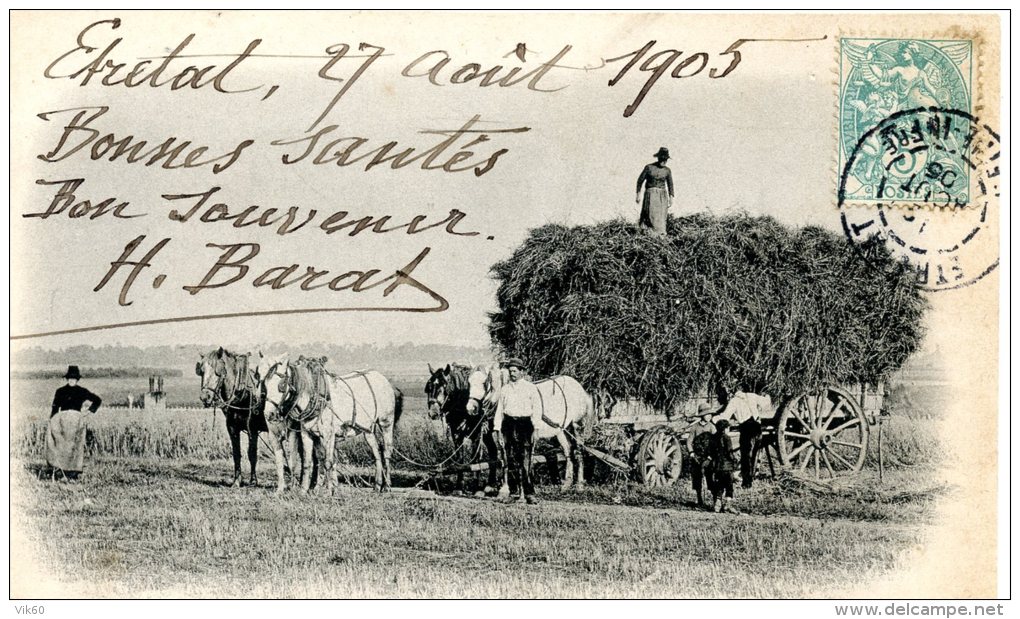 Etretat, 27 Août 1905
Bonnes Santés
Bon Souvenir.
H. Barat
ETRETAT
AOUT
05
Vik60
delcampe.net